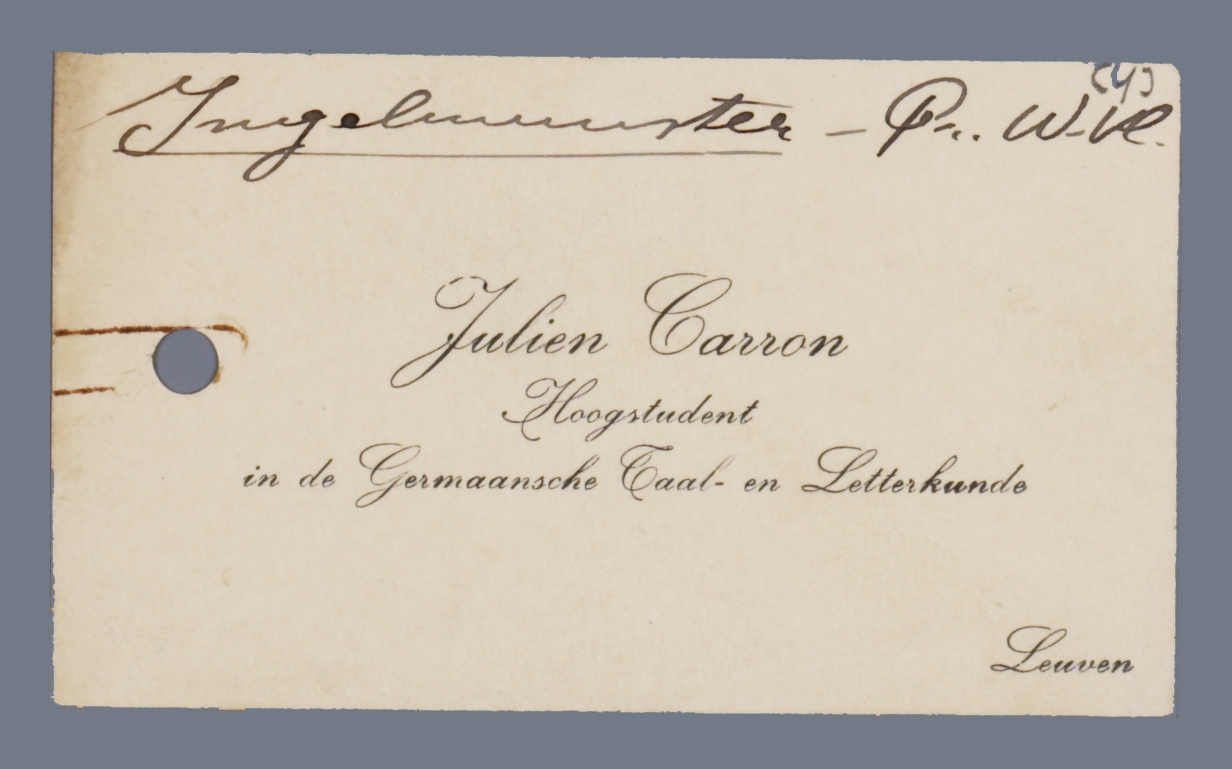 Ingelmunster – Pr. W-Vl.
Julien Carron
Hoogstudent
in de Germaansche Taal- en Letterkunde
Leuven